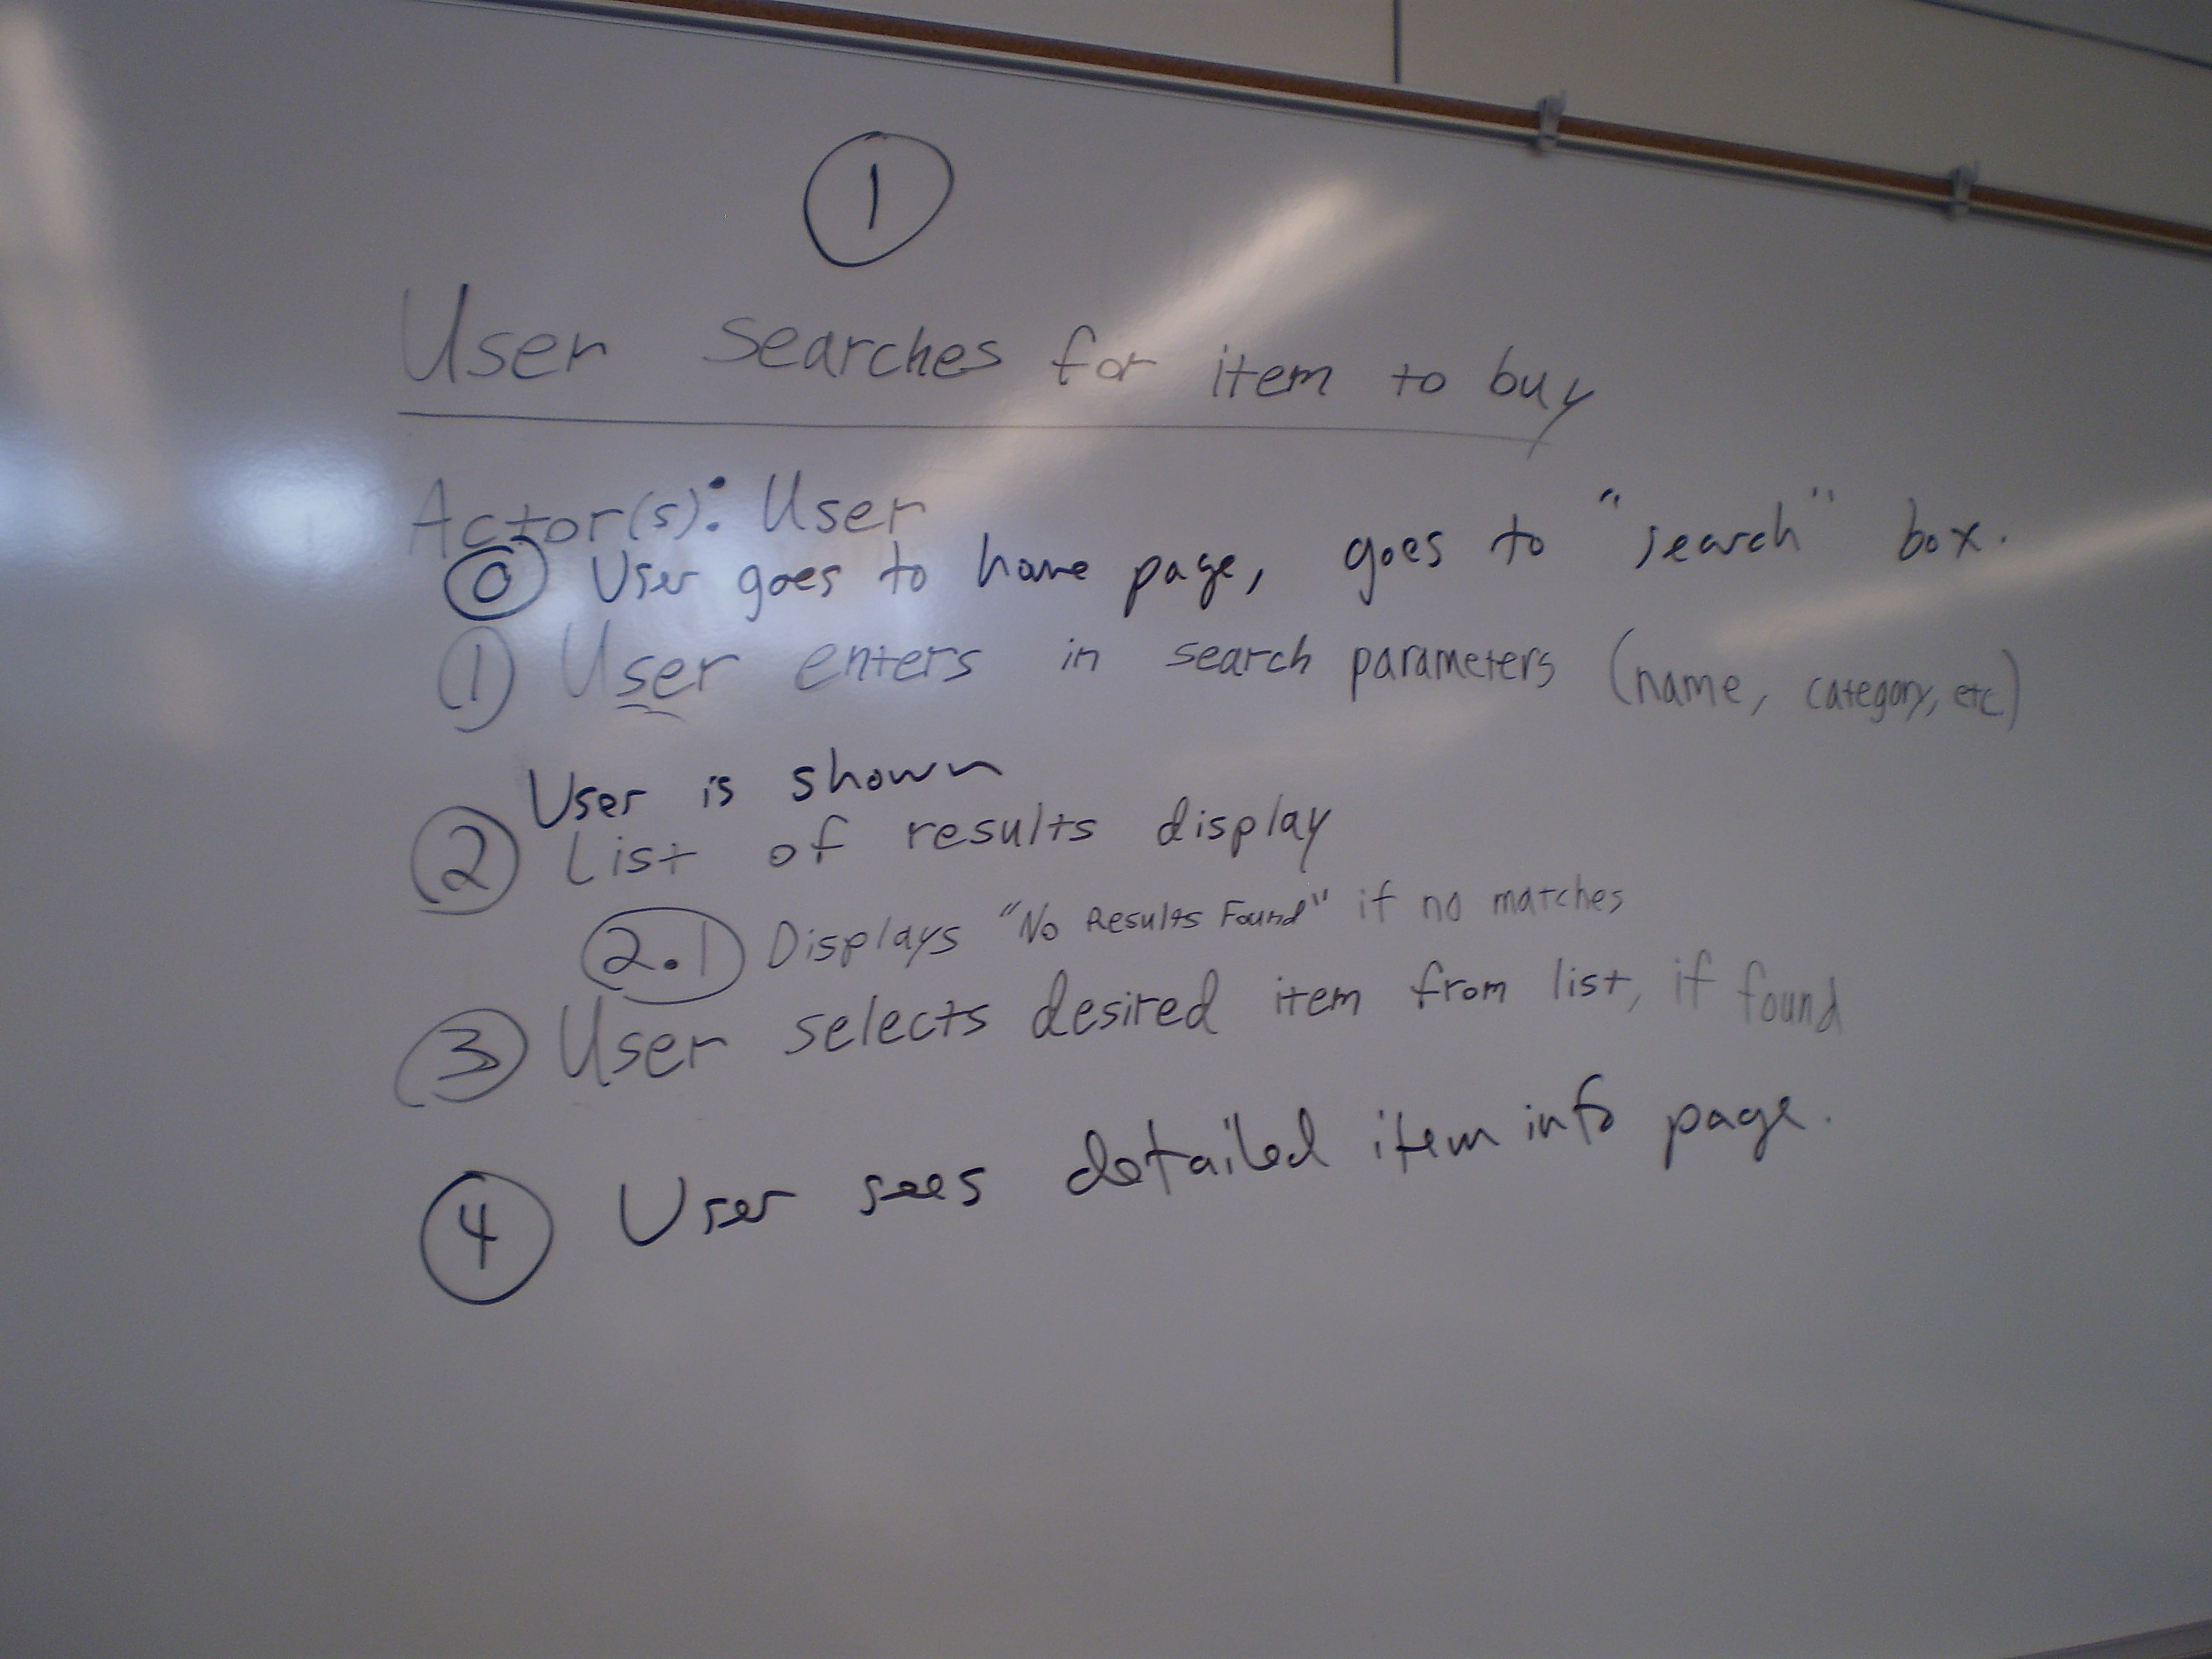 1
User searches for item to buy
Actor(s): User
0 User goes to home page, goes to "search" box.
1 User enters in search parameters (name, category, etc)
User is shown
2 List of results display
2.1 Displays "No Results Found" if no matches
3 User selects desired item from list, if found
4 User sees detailed item info page.